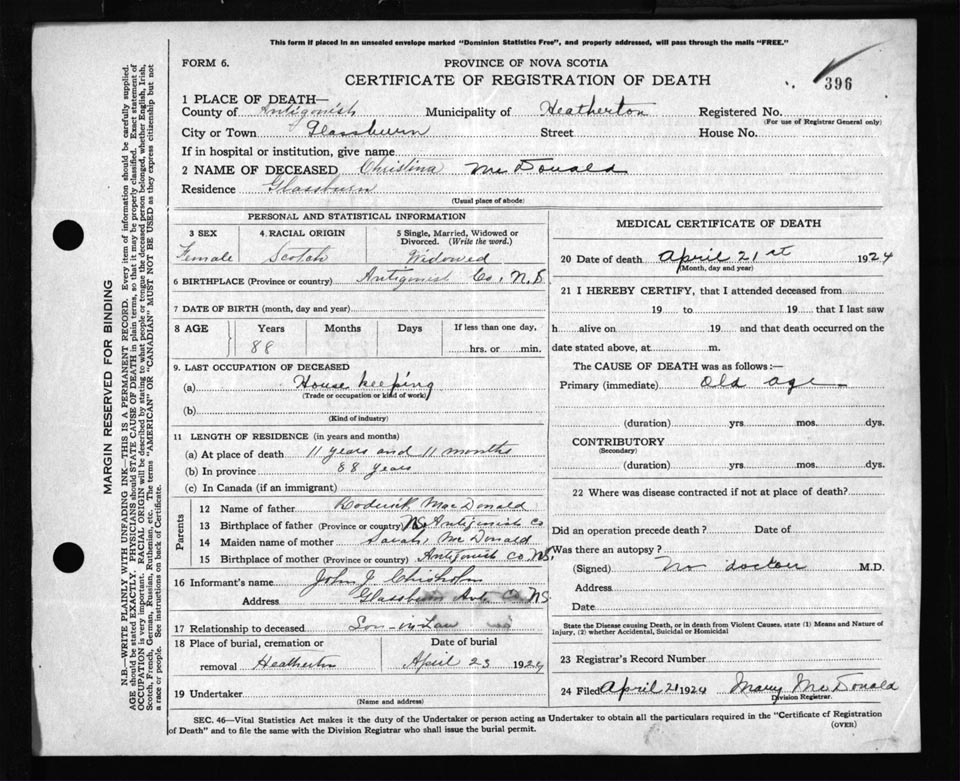 This form if placed in an unsealed envelope marked "Dominion Statistics Free", and properly addressed, will pass through the mails "FREE."
FORM 6.
PROVINCE OF NOVA SCOTIA
CERTIFICATE OF REGISTRATION OF DEATH
396
1 PLACE OF DEATH—
County of Antigonish Municipality of Heatherton Registered No.
(For use of Registrar General only)
City or Town Glassburn Street House No.
If in hospital or institution, give name
2 NAME OF DECEASED Christina McDonald
Residence Glassburn
(Usual place of abode)
PERSONAL AND STATISTICAL INFORMATION
3 SEX 4. RACIAL ORIGIN 5 Single, Married, Widowed or Divorced. (Write the word.)
Female Scotch Widowed
6 BIRTHPLACE (Province or country) Antigonish Co. N.S
7 DATE OF BIRTH (month, day and year)
8 AGE Years Months Days If less than one day,
88 hrs. or min.
9. LAST OCCUPATION OF DECEASED
(a) House keeping
(Trade or occupation or kind of work)
(b)
(Kind of industry)
11 LENGTH OF RESIDENCE (in years and months)
(a) At place of death 11 years and 11 months
(b) In province 88 years
(c) In Canada (if an immigrant)
Parents
12 Name of father Roderick MacDonald
13 Birthplace of father (Province or country) NS Antigonish Co
14 Maiden name of mother Sarah McDonald
15 Birthplace of mother (Province or country) Antigonish Co NS.
16 Informant's name John J. Chisholm
Address Glassburn Ant. Co NS
17 Relationship to deceased Son-in-Law
18 Place of burial, cremation or removal Heatherton Date of burial April 23 1924
19 Undertaker
(Name and address)
MEDICAL CERTIFICATE OF DEATH
20 Date of death April 21st 1924
(Month, day and year)
21 I HEREBY CERTIFY, that I attended deceased from
19 to 19 that I last saw
h alive on 19 and that death occurred on the
date stated above, at m.
The CAUSE OF DEATH was as follows:—
Primary (immediate) old age
(duration) yrs mos. dys.
CONTRIBUTORY
(Secondary)
(duration) yrs. mos. dys.
22 Where was disease contracted if not at place of death?
Did an operation precede death? Date of
Was there an autopsy?
(Signed) No doctor M.D.
Address
Date
State the Disease causing Death, or in death from Violent Causes, state (1) Means and Nature of Injury, (2) whether Accidental, Suicidal or Homicidal
23 Registrar's Record Number
24 Filed April 21 1924 Mary McDonald
Division Registrar.
SEC. 46—Vital Statistics Act makes it the duty of the Undertaker or person acting as Undertaker to obtain all the particulars required in the "Certificate of Registration
of Death" and to file the same with the Division Registrar who shall issue the burial permit.
(OVER)
MARGIN RESERVED FOR BINDING
N.B.—WRITE PLAINLY WITH UNFADING INK—THIS IS A PERMANENT RECORD. Every item of information should be carefully supplied.
AGE should be stated EXACTLY. PHYSICIANS should STATE CAUSE OF DEATH in plain terms, so that it may be properly classified. Exact statement of
OCCUPATION is very important. RACIAL ORIGIN will be described by stating to what people or tongue the deceased person belonged, whether English, Irish,
Scotch, French, German, Russian, Ruthenian, etc. The terms "AMERICAN" OR "CANADIAN" MUST NOT BE USED as they express citizenship but not
a race or people. See instructions on back of Certificate.